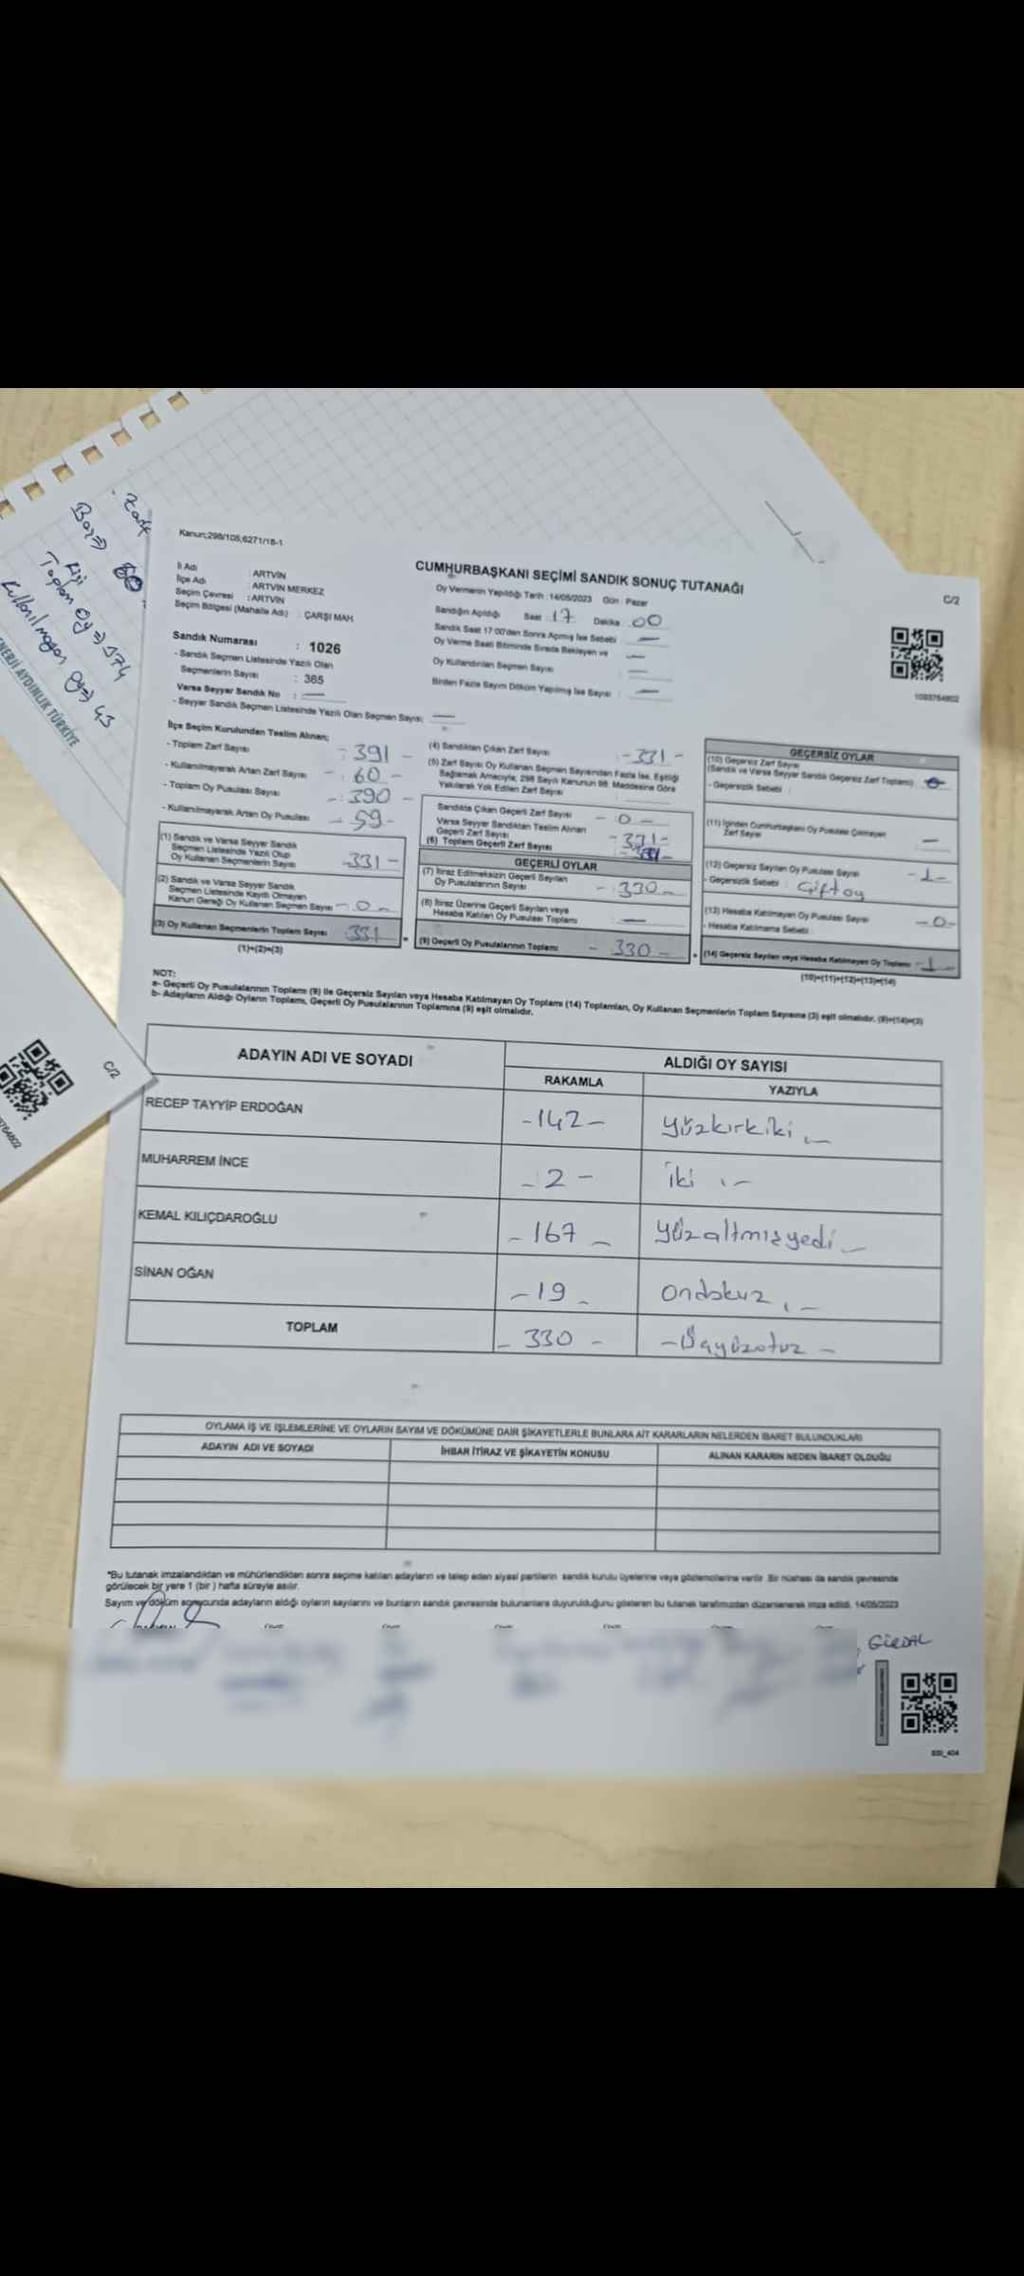 Zarf
Baş=>
Toplam Oy => 374
Kullanılmayan Oy=> 43
ENERJİ AYDINLIK TÜRKİYE
Kanun;298/105,6271/18-1
CUMHURBAŞKANI SEÇİMİ SANDIK SONUÇ TUTANAĞI
C/2
İl Adı : ARTVİN
İlçe Adı : ARTVİN MERKEZ
Seçim Çevresi : ARTVİN
Seçim Bölgesi (Mahalle Adı) : ÇARŞI MAH
Oy Vermenin Yapıldığı Tarih : 14/05/2023 Gün : Pazar
Sandığın Açıldığı Saat : 17 Dakika : 00
Sandık Saat 17:00'den Sonra Açmış İse Sebebi : —
Oy Verme Saati Bitiminde Sırada Bekleyen ve
Oy Kullandırılan Seçmen Sayısı : —
Birden Fazla Sayım Döküm Yapılmış İse Sayısı : —
Sandık Numarası : 1026
- Sandık Seçmen Listesinde Yazılı Olan
Seçmenlerin Sayısı : 365
Varsa Seyyar Sandık No : —
- Seyyar Sandık Seçmen Listesinde Yazılı Olan Seçmen Sayısı: —
İlçe Seçim Kurulundan Teslim Alınan;
- Toplam Zarf Sayısı : 391 -
- Kullanılmayarak Artan Zarf Sayısı - : 60 -
- Toplam Oy Pusulası Sayısı - : 390 -
- Kullanılmayarak Artan Oy Pusulası - 59 -
(1) Sandık ve Varsa Seyyar Sandık
Seçmen Listesinde Yazılı Olup
Oy Kullanan Seçmenlerin Sayısı -331-
(2) Sandık ve Varsa Seyyar Sandık
Seçmen Listesinde Kayıtlı Olmayan
Kanun Gereği Oy Kullanan Seçmen Sayısı - 0 -
(3) Oy Kullanan Seçmenlerin Toplam Sayısı 331
(1)+(2)=(3)
(4) Sandıktan Çıkan Zarf Sayısı - 331 -
(5) Zarf Sayısı Oy Kullanan Seçmen Sayısından Fazla İse, Eşitliği
Sağlamak Amacıyla, 298 Sayılı Kanunun 98. Maddesine Göre
Yakılarak Yok Edilen Zarf Sayısı
Sandıkta Çıkan Geçerli Zarf Sayısı - 0 -
Varsa Seyyar Sandıktan Teslim Alınan
Geçerli Zarf Sayısı
(6) Toplam Geçerli Zarf Sayısı
GEÇERLİ OYLAR
(7) İtiraz Edilmeksizin Geçerli Sayılan
Oy Pusulalarının Sayısı - 330 -
(8) İtiraz Üzerine Geçerli Sayılan veya
Hesaba Katılan Oy Pusulası Toplamı —
(9) Geçerli Oy Pusulalarının Toplamı - 330 -
GEÇERSİZ OYLAR
(10) Geçersiz Zarf Sayısı
(Sandık ve Varsa Seyyar Sandık Geçersiz Zarf Toplamı)
- Geçersizlik Sebebi :
(11) İçinden Cumhurbaşkanı Oy Pusulası Çıkmayan
Zarf Sayısı —
(12) Geçersiz Sayılan Oy Pusulası Sayısı -1-
- Geçersizlik Sebebi : Çift oy
(13) Hesaba Katılmayan Oy Pusulası Sayısı -0-
- Hesaba Katılmama Sebebi :
(14) Geçersiz Sayılan veya Hesaba Katılmayan Oy Toplamı -1-
(10)+(11)+(12)+(13)=(14)
NOT:
a- Geçerli Oy Pusulalarının Toplamı (9) ile Geçersiz Sayılan veya Hesaba Katılmayan Oy Toplamı (14) Toplamları, Oy Kullanan Seçmenlerin Toplam Sayısına (3) eşit olmalıdır. (9)+(14)=(3)
b- Adayların Aldığı Oyların Toplamı, Geçerli Oy Pusulalarının Toplamına (9) eşit olmalıdır.
ADAYIN ADI VE SOYADI
ALDIĞI OY SAYISI
RAKAMLA YAZIYLA
RECEP TAYYİP ERDOĞAN -142- yüzkırkiki
MUHARREM İNCE - 2 - iki
KEMAL KILIÇDAROĞLU - 167 - yüzaltmışyedi
SİNAN OĞAN - 19 - ondokuz
TOPLAM - 330 - - Üçyüzotuz -
OYLAMA İŞ VE İŞLEMLERİNE VE OYLARIN SAYIM VE DÖKÜMÜNE DAİR ŞİKAYETLERLE BUNLARA AİT KARARLARIN NELERDEN İBARET BULUNDUKLARI
ADAYIN ADI VE SOYADI
İHBAR İTİRAZ VE ŞİKAYETİN KONUSU
ALINAN KARARIN NEDEN İBARET OLDUĞU
*Bu tutanak imzalandıktan ve mühürlendikten sonra seçime katılan adayların ve talep eden siyasi partilerin sandık kurulu üyelerine veya gözlemcilerine verilir. Bir nüshası da sandık çevresinde
görülecek bir yere 1 (bir ) hafta süreyle asılır.
Sayım ve döküm sonucunda adayların aldığı oyların sayılarını ve bunların sandık çevresinde bulunanlara duyurulduğunu gösteren bu tutanak tarafımızdan düzenlenerek imza edildi. 14/05/2023
C/2